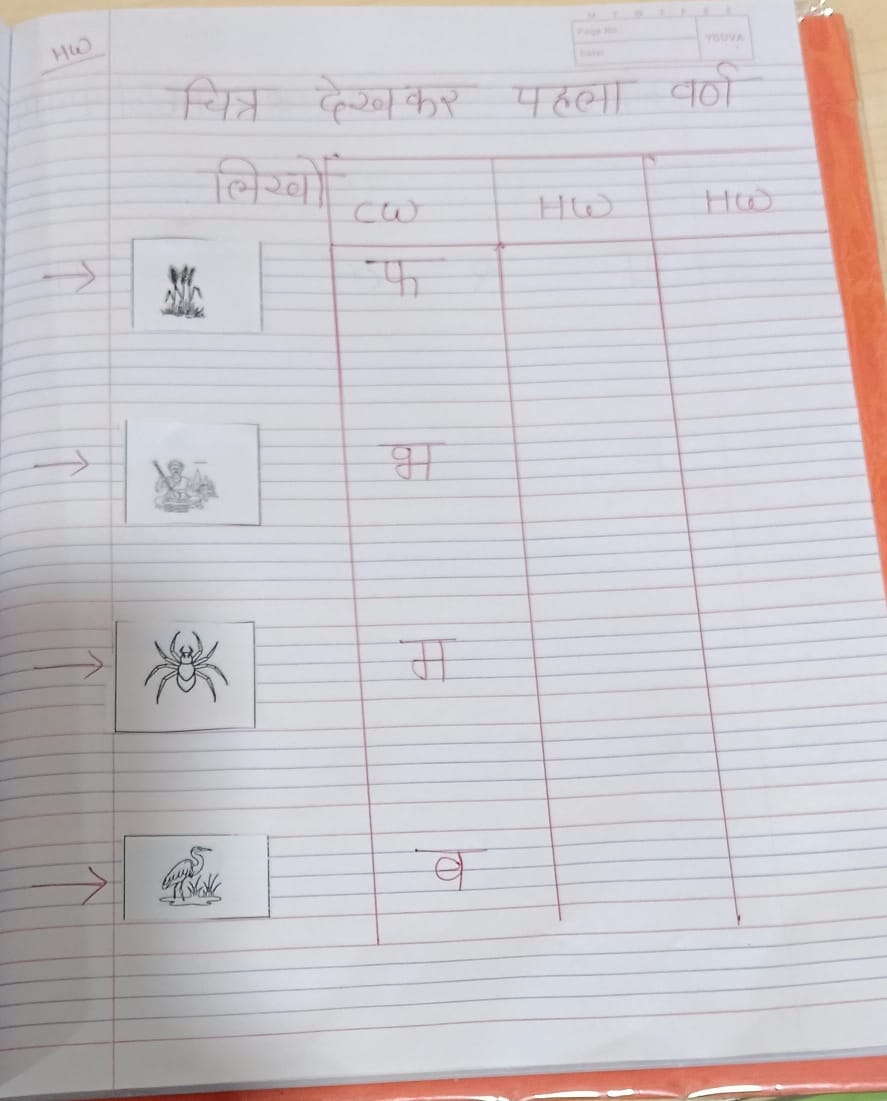 HW
M T W T F S S
Page No.:
Date:
YOUVA
चित्र देखकर पहला वर्ण
लिखो
CW HW HW
→ फ
→ भ
→ म
→ ब